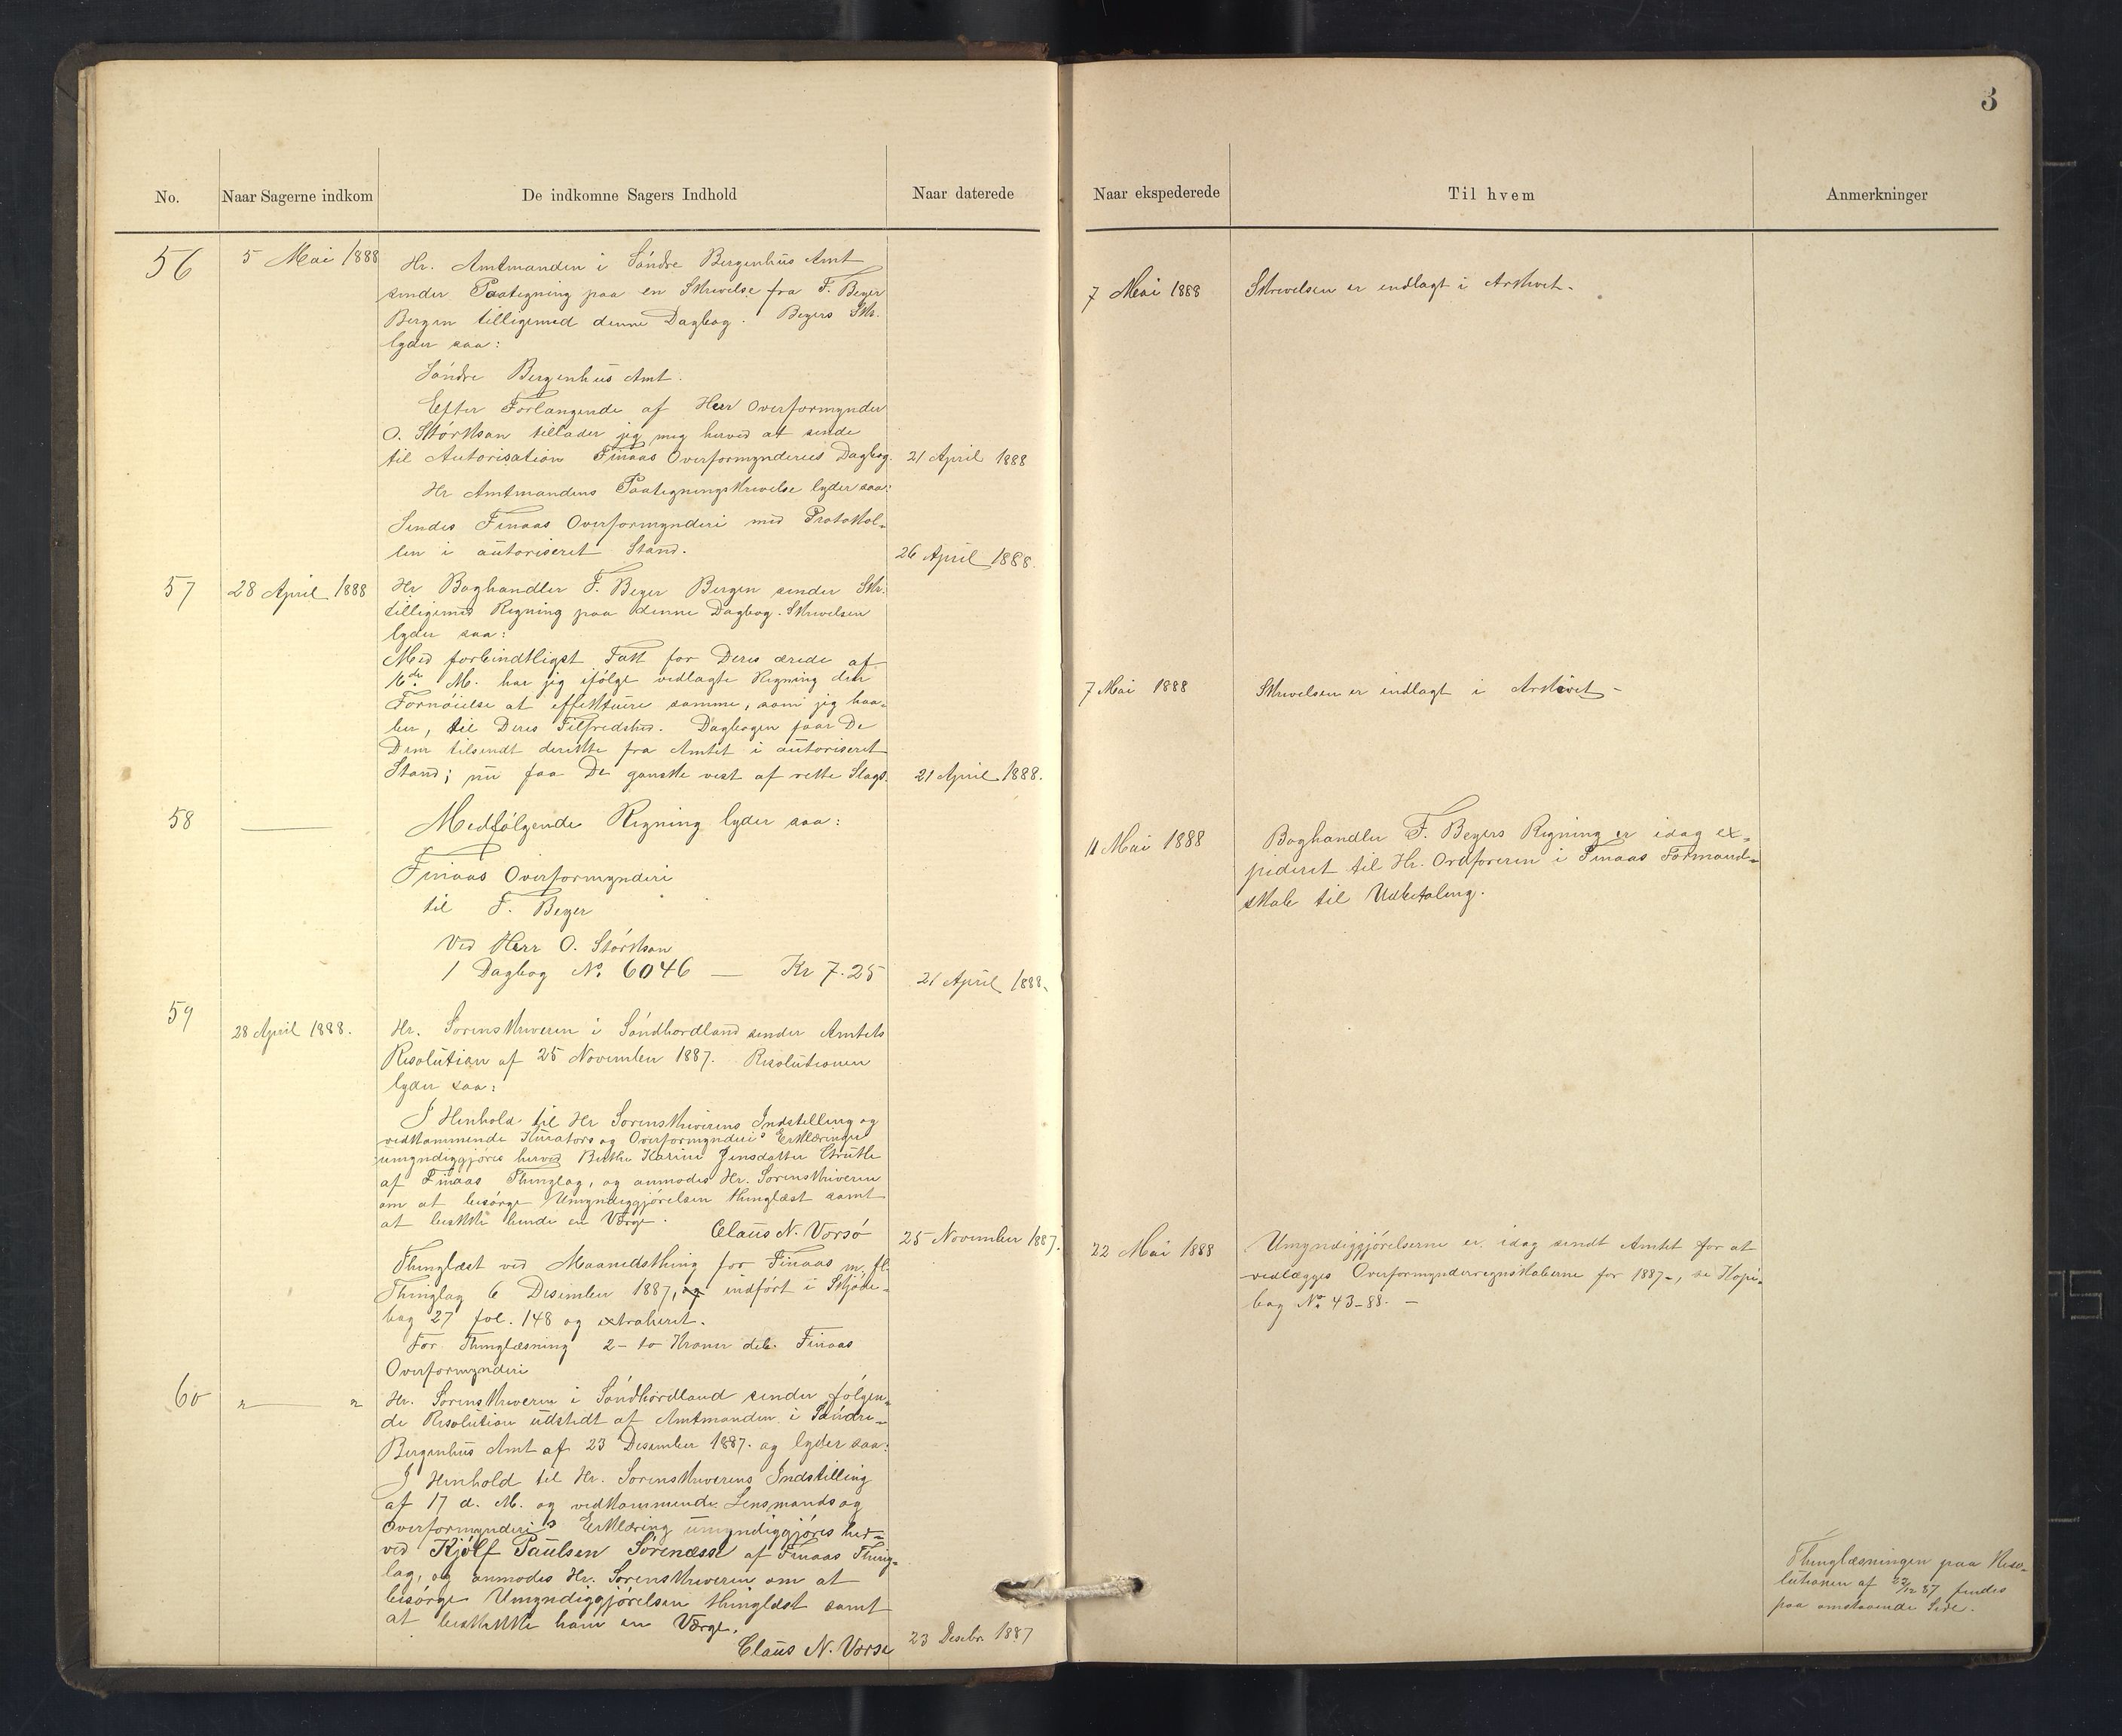 3
No.
Naar Sagerne indkom
De indkomne Sagers Indhold
Naar daterede
Naar ekspederede
Til hvem
Anmerkninger
56
5 Mai 1888
Hr. Amtmanden i Søndre Bergenhus Amt
sender Paategning paa en Skrivelse fra F. Beyer
Bergen tilligemed denne Dagbog. Beyers Skr.
lyder saa:
Søndre Bergenhus Amt.
Efter Forlangende af Herr Overformynder
O. Størkson tillader jeg mig herved at sende
til Autorisation Finaas Overformynderies Dagbog.
21 April 1888
Hr Amtmandens Paategningskrivelse lyder saa:
Sendes Finaas Overformynderi med Protokol-
len i autoriseret Stand.
26 April 1888.
7 Mai 1888
Skrivelsen er indlagt i Arkivet.
57
28 April 1888
Hr Boghandler F. Beyer Bergen sender Skr.
tilligemed Regning paa denne Dagbog. Skrivelsen
lyder saa:
Med forbindtligst Takk for Deres ærede af
16de M. har jeg ifølge vedlagte Regning den
Fornøielse at effektuere samme, som jeg haa-
ber, til Deres Tilfredshed. Dagbogen faar De
Dem tilsendt derikte fra Amtet i autoriseret
Stand; nu faa De ganske vist af rette Slags.
21 April 1888.
7 Mai 1888
Skrivelsen er indlagt i Arkivet -
58
Medfølgende Regning lyder saa:
Finaas Overformynderi
til F. Beyer
Ved Herr O. Størkson
1 Dagbog No. 6046 — Kr 7.25
21 April 1888.
11 Mai 1888
Boghandler F. Beyers Regning er idag ex-
pederet til Hr. Ordføreren i Finaas Formand-
skab til Udbetaling.
59
28 April 1888.
Hr. Sorenskriveren i Søndhordland sender Amtets
Resolution af 25 November 1887. Resolutionen
lyder saa:
I Henhold til Hr Sorenskriverens Indstilling og
vedkommende Kurators og Overformynderi's Erklæringer
umyndiggjøres herved Berthe Karine Jensdatter
af Finaas Thinglag, og anmodes Hr. Sorenskriveren
om at besørge Umyndiggjørelsen thinglæst samt
at beskikke hende en Værge.
Claus N. Vorsø
25 November 1887.
Thinglæst ved Maanedsthing for Finaas m. fl.
Thinglag 6 Desember 1887, og indført i Skjøde-
bog 27 fol. 148 og extraheret.
For Thinglæsning 2 - to Kroner deb. Finaas
Overformynderi
22 Mai 1888
Umyndiggjørelserne er idag sendt Amtet for at
vedlægges Overformynderregnskaberne for 1887-, se Kopi-
bog No. 43-88. -
60
" — "
Hr. Sorenskriveren i Søndhordland sender følgen-
de Resolution udstedt af Amtmanden i Søndre-
Bergenhus Amt af 23 Desember 1887. og lyder saa:
I Henhold til Hr. Sorenskriverens Indstilling
af 17 d. M. og vedkommende Lensmands og
Overformynderi's Erklæring umyndiggjøres her-
ved Kjølf Paulsen Sørenæsse af Finaas Thing-
lag, og anmodes Hr. Sorenskriveren om at
besørge Umyndiggjørelsen thinglæst samt
at beskikke ham en Værge.
Claus N. Vorsø
23 Desbr. 1887
Thinglæsningen paa Reso-
lutionen af 23/12 87 findes
paa omstaaende Side.